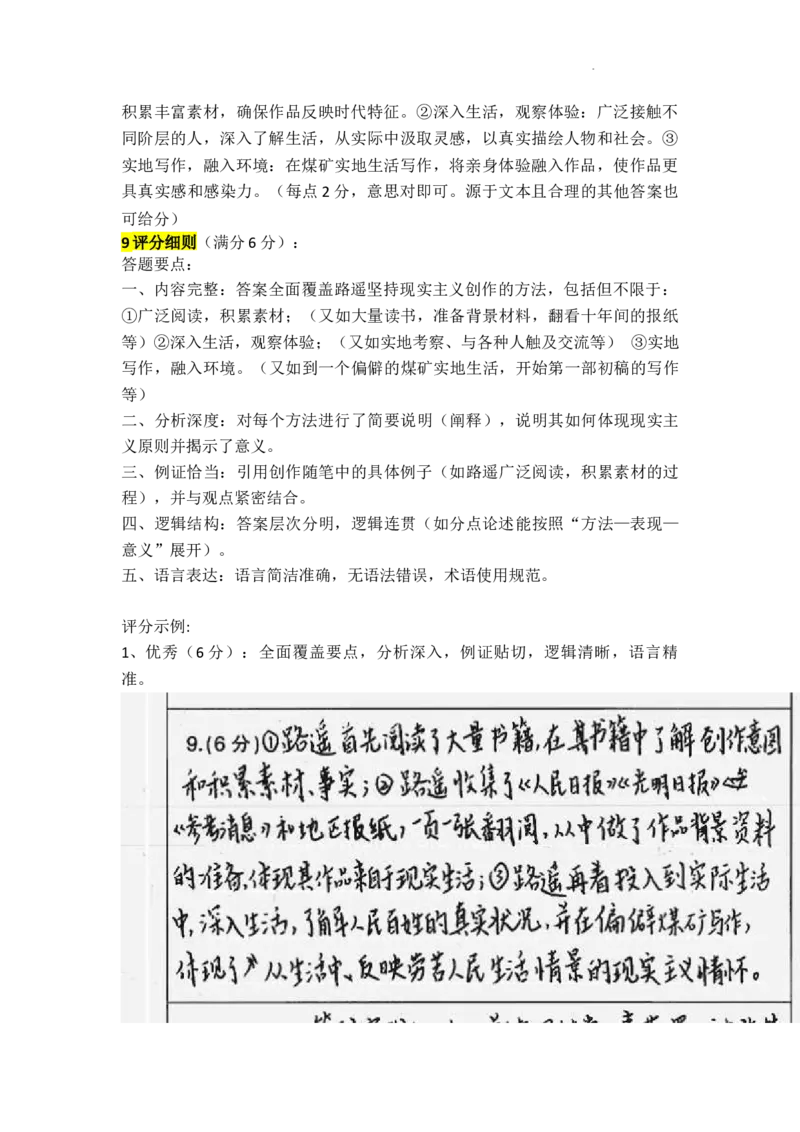 积累丰富素材，确保作品反映时代特征。②深入生活，观察体验：广泛接触不
同阶层的人，深入了解生活，从实际中汲取灵感，以真实描绘人物和社会。③
实地写作，融入环境：在煤矿实地生活写作，将亲身体验融入作品，使作品更
具真实感和感染力。（每点 2 分，意思对即可。源于文本且合理的其他答案也
可给分）
9 评分细则（满分 6 分）：
答题要点：
一、内容完整：答案全面覆盖路遥坚持现实主义创作的方法，包括但不限于：
①广泛阅读，积累素材；（又如大量读书，准备背景材料，翻看十年间的报纸
等）②深入生活，观察体验；（又如实地考察、与各种人触及交流等） ③实地
写作，融入环境。（又如到一个偏僻的煤矿实地生活，开始第一部初稿的写作
等）
二、分析深度：对每个方法进行了简要说明（阐释），说明其如何体现现实主
义原则并揭示了意义。
三、例证恰当：引用创作随笔中的具体例子（如路遥广泛阅读，积累素材的过
程），并与观点紧密结合。
四、逻辑结构：答案层次分明，逻辑连贯（如分点论述能按照“方法—表现—
意义”展开）。
五、语言表达：语言简洁准确，无语法错误，术语使用规范。
评分示例:
1、优秀（6 分）：全面覆盖要点，分析深入，例证贴切，逻辑清晰，语言精
准。
9.(6 分)①路遥首先阅读了大量书籍,在其书籍中了解创作意图
和积累素材、事实;②路遥收集了《人民日报》《光明日报》
《参考消息》和地区报纸,一页一张翻阅,从中做了作品背景资料
的准备,体现其作品来自于现实生活;③路遥再者投入到实际生活
中,深入生活,了解人民百姓的真实状况,并在偏僻煤矿写作,
体现了从生活中、反映劳苦人民生活情景的现实主义情怀。